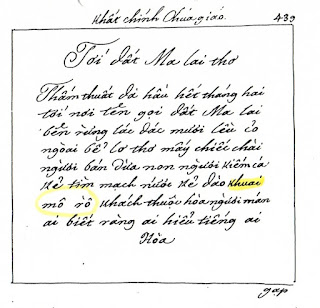 Khất chính Chúa giáo. 439
Tới đất Ma lai thơ
Thấm thuắt đã hầu hết tháng hai
tới nơi tên gọi đất Ma lai
bến rừng lác đác mười lều cỏ
ngoài bể lơ thơ mấy chiếc chài
người bán dừa non người kiếm cá
kẻ tìm mạch nước kẻ đào khuai
mô rồ khách thuộc hòa người mán
ai biết ràng ai hiểu tiếng ai
Hòa
gap